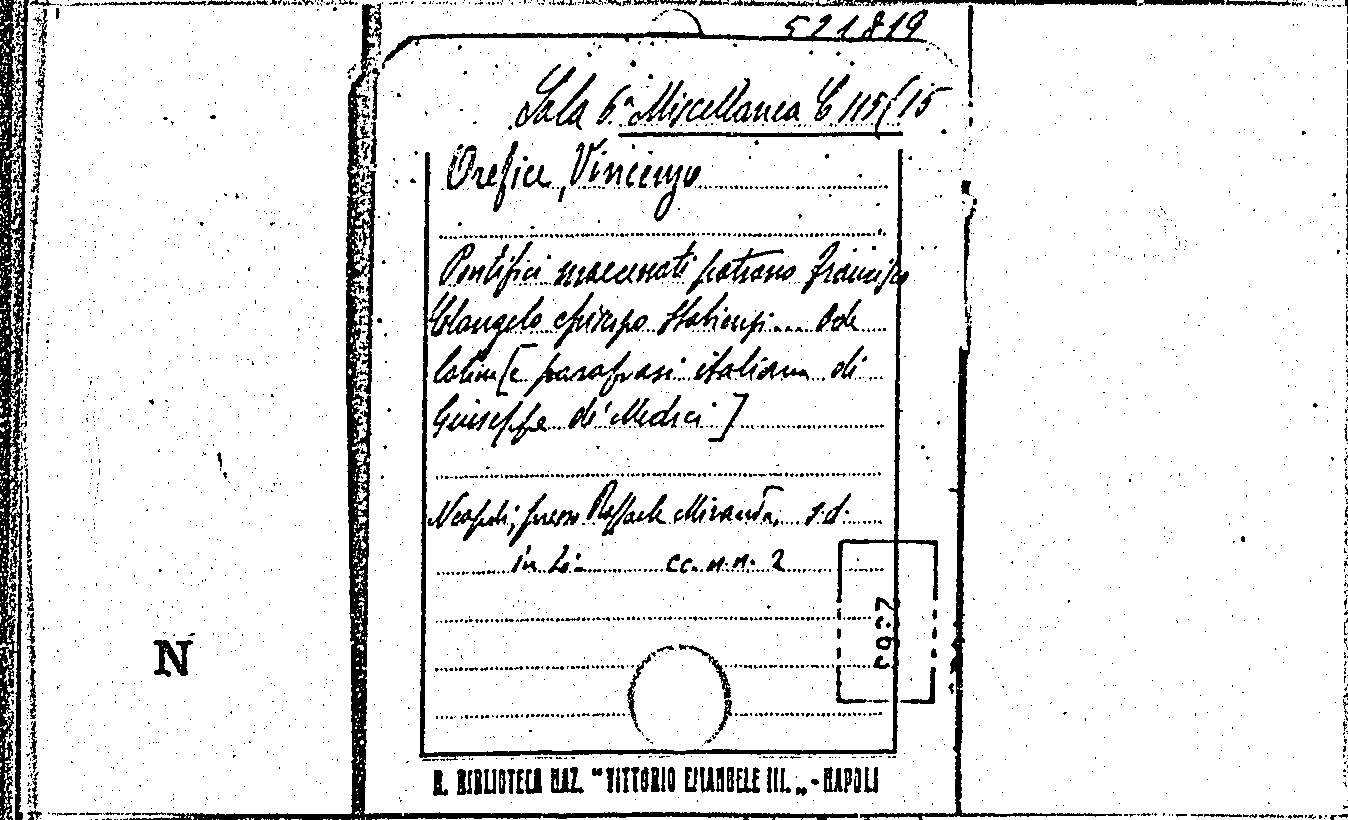 521819
Sala 6ª Miscellanea C 115/15
Orefice, Vincenzo
Pontifici maecenati patrono Francisco
Colangelo episcopo Stabiensi... Ode
latina [e parafrasi italiana di
Giuseppe de' Medici]
Neapoli, presso Raffaele Miranda, s.d.
in cc. n.n. 2
N
R. BIBLIOTECA NAZ. "VITTORIO EMANUELE III." - NAPOLI